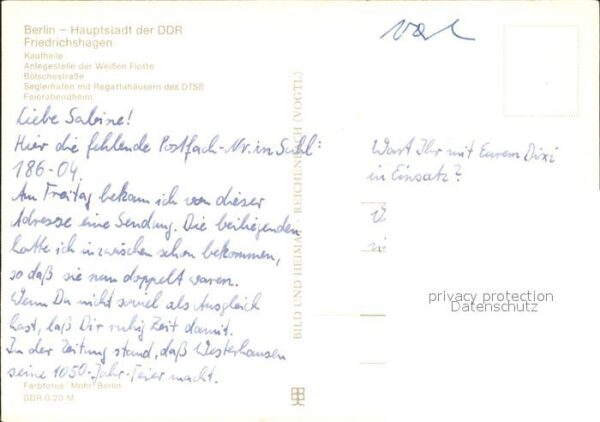 Berlin – Hauptstadt der DDR
Friedrichshagen
Kaufhalle
Anlegestelle der Weißen Flotte
Bölschestraße
Seglerhafen mit Regattahäusern des DTSB
Feierabendheim
Liebe Sabine!
Hier die fehlende Postfach-Nr. in Suhl:
186-04.
Am Freitag bekam ich von dieser
Adresse eine Sendung. Die beiliegenden
hatte ich inzwischen schon bekommen,
so daß sie nun doppelt waren.
Wenn Du nicht soviel als Ausgleich
hast, laß Dir ruhig Zeit damit.
In der Zeitung stand, daß Westerhausen
seine 1050-Jahr-Feier macht.
Farbfotos: Mohr, Berlin
DDR 0,20 M
BILD UND HEIMAT REICHENBACH (VOGTL)
Wart Ihr mit Eurem Dixi
in Einsatz?
privacy protection
Datenschutz